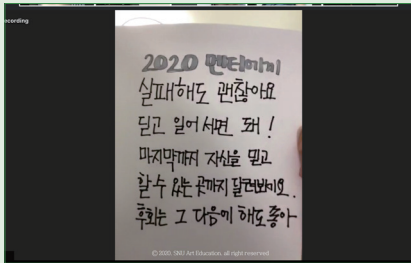 ecording
2020 멘티까지
실패해도 괜찮아요
딛고 일어서면 돼!
마지막까지 자신을 믿고
할 수 있는 곳까지 달려봐요.
후회는 그 다음에 해도 좋아
© 2020. SNU Art Education. all right reserved